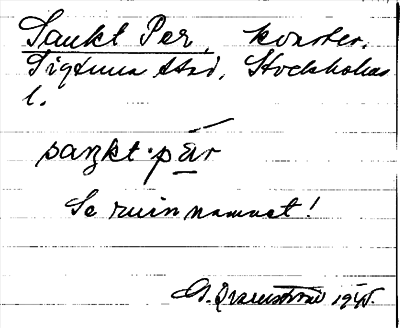 Sankt Per, kvarter.
Sigtuna stad, Stockholms
l.
saŋkt·pär
Se ruinnamnet!
1945.